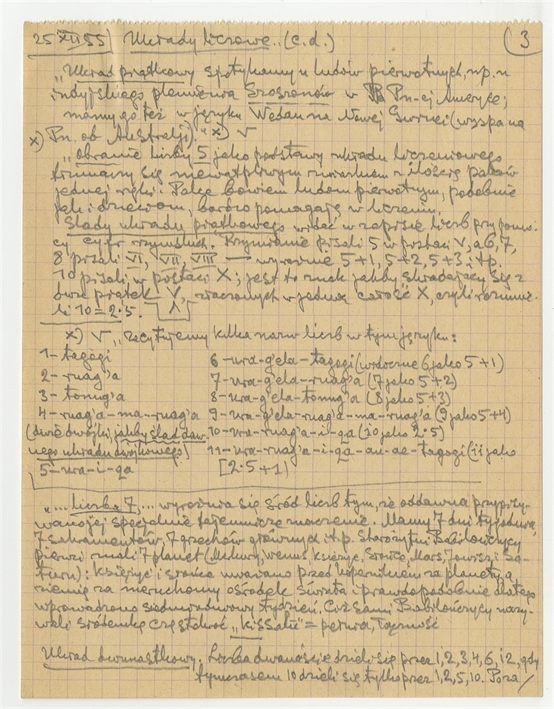 25 XII 55) Układy liczowe.. (c.d.) (3
„Układ piątkowy spotykamy u ludów pierwotnych, np. u
indyjskiego plemienia Szoszonów w Pn-ej Ameryce;
mamy go też w języku Wedau na Nowej Gwinei (wyspa na
x) Pn. od Australji)." x) V
„obranie liczby 5 jako podstawy układu liczeniowego
tłumaczy się niewątpliwym związkiem z ilością palców
jednej ręki. Palce bowiem ludom pierwotnym, podobnie
jak i dzieciom, bardzo pomagają w liczeniu.
Ślady układu piątkowego widać w zapisie liczb przy pomo-
cy cyfr rzymskich. Rzymianie pisali 5 w postaci V, a 6, 7,
8 pisali VI, VII, VIII — wyraźnie 5+1, 5+2, 5+3 itp.
10 pisali w postaci X; jest to znak jakby składający się z
dwu piątek V Λ, złączonych w jedną całość X, czyli rozumie-
li 10 = 2·5.
x) V „Zacytujemy kilka nazw liczb w tym języku:
1 - tagogi
2 - ruag'a
3 - tonug'a
4 - ruag'a-ma-ruag'a
(dwie dwójki) jakby ślad daw-
nego układu dwójkowego)
5 - ura-i-qa
6 - ura-g'ela-tagogi (widocznie 6 jako 5+1)
7 - ura-g'ela-ruag'a (7 jako 5+2)
8 - ura-g'ela-tonug'a (8 jako 5+3)
9 - ura-g'ela-ruag'a-ma-ruag'a (9 jako 5+4)
10 - ura-ruag'a-i-qa (10 jako 2·5)
11 - ura-ruag'a-i-qa-au-ae-tagogi (11 jako
[2·5+1)
„... liczba 7, .. wyróżnia się śród liczb tym, że oddawna przypisy-
wano jej specjalnie tajemnicze znaczenie. Mamy 7 dni tygodnia,
7 sakramentów, 7 grzechów głównych itp. Starożytni Babilończycy
pierwsi znali 7 planet (Merkury, Wenus, Księżyc, Słońce, Mars, Jowisz i Sa-
turn): księżyc i słońce uważano przed Kopernikem za planety, a
ziemię za nieruchomy ośrodek świata i prawdopodobnie dlatego
wprowadzono siedmiodniowy tydzień. Ciż sami Babilończycy nazy-
wali siódemkę częstokroć „kissatu" = pełnia, łączność
Układ dwunastkowy. Liczba dwanaście dzieli się przez 1, 2, 3, 4, 6, 12, gdy
tymczasem 10 dzieli się tylko przez 1, 2, 5, 10. Poza/